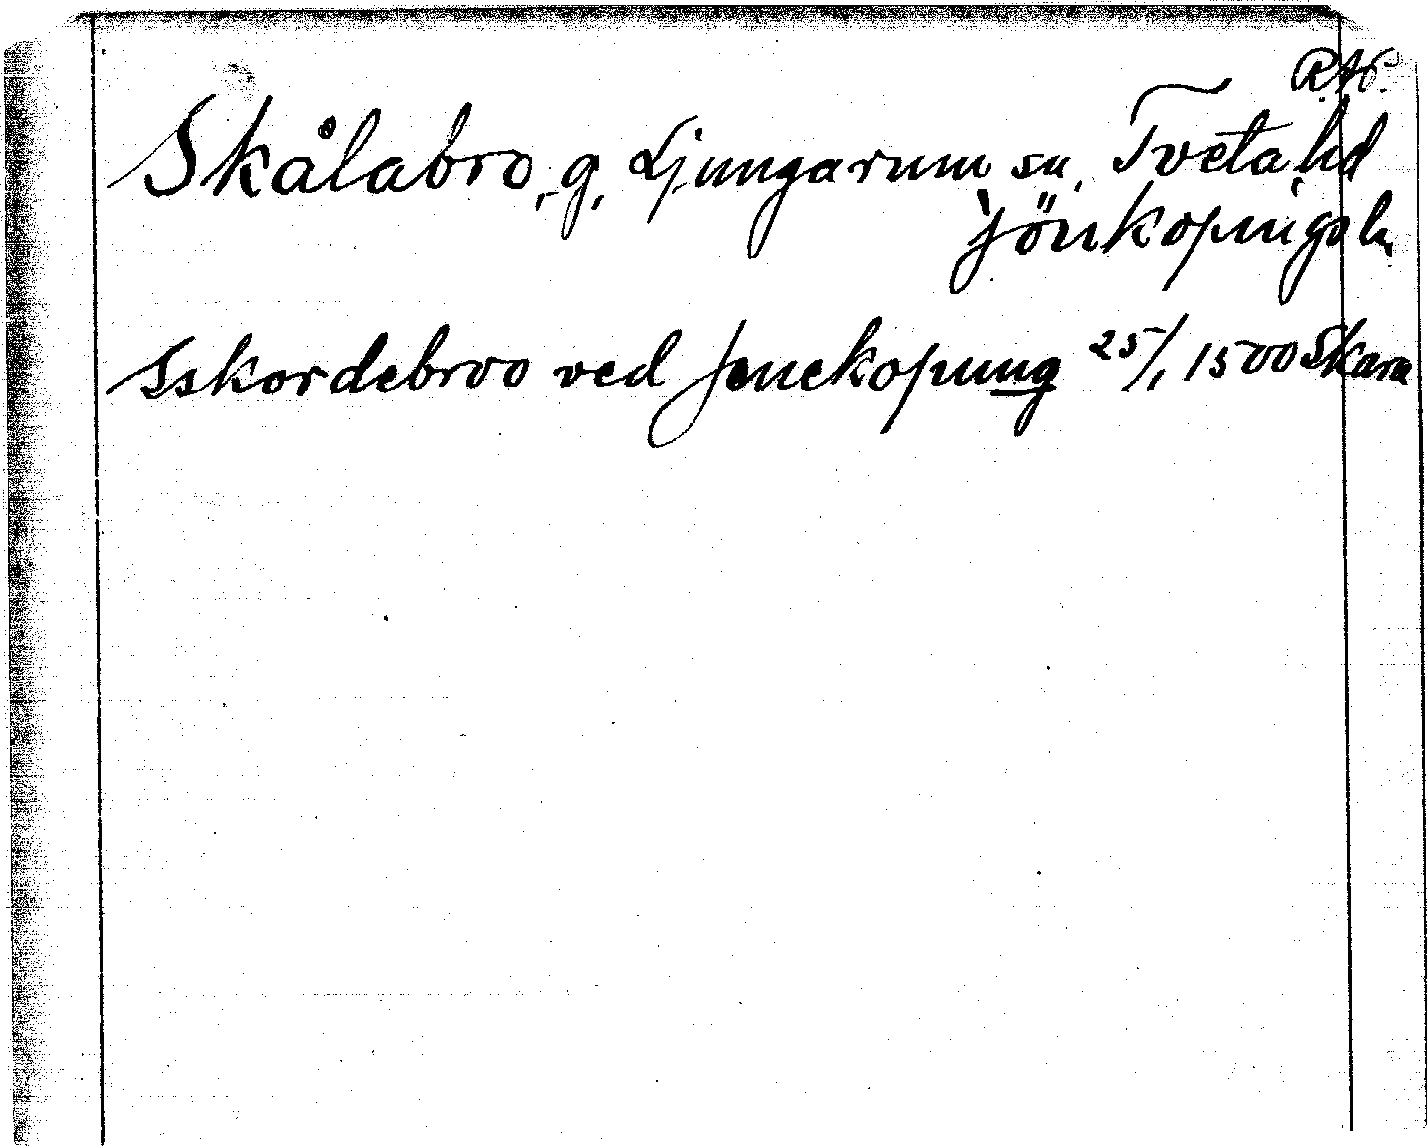 R.A.P.
Skålabro, g, Ljungarum sn, Tveta hd
Jönköpings ln
Sskordebroo ved Jenekopung 25/1 1500 Skara